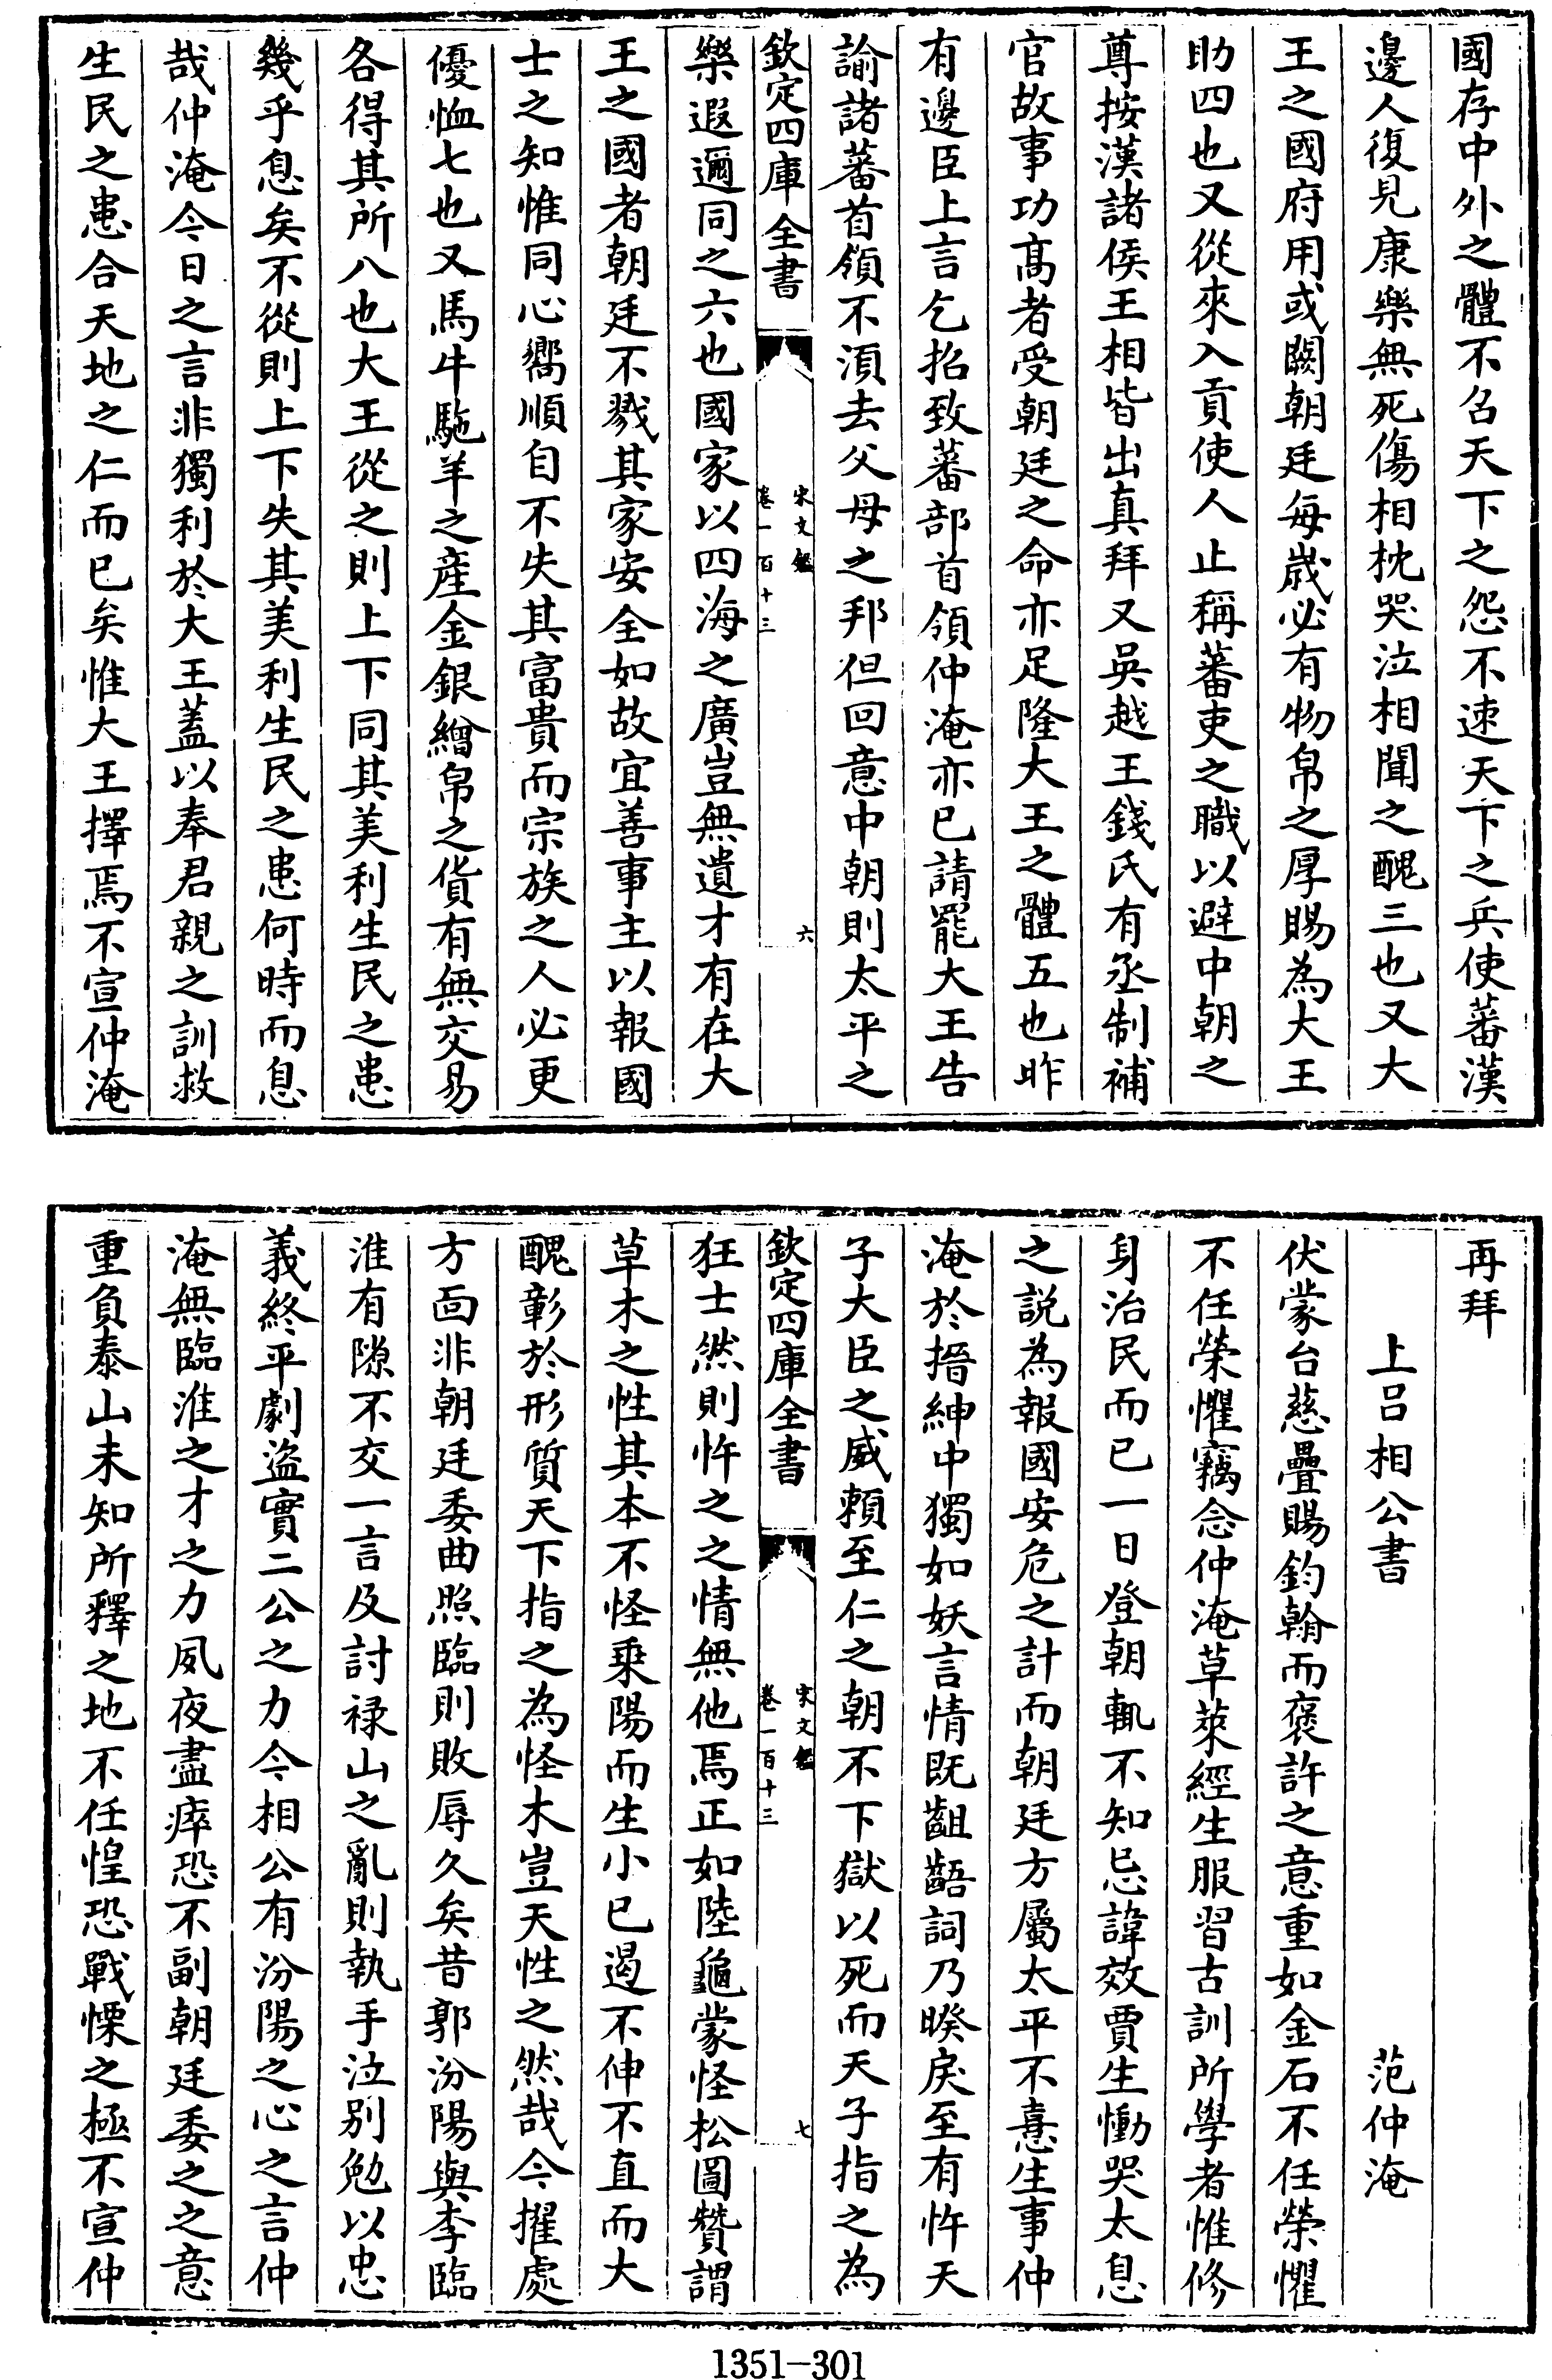 國存中外之體不召天下之怨不速天下之兵使蕃漢
邊人復見康樂無死傷相枕哭泣相聞之醜三也又大
王之國府用或闕朝廷每歲必有物帛之厚賜為大王
助四也又從來入貢使人止稱蕃吏之職以避中朝之
尊按漢諸侯王相皆出真拜又吳越王錢氏有丞制補
官故事功髙者受朝廷之命亦足隆大王之體五也昨
有邊臣上言乞招致蕃部首領仲淹亦已請罷大王告
諭諸蕃首領不湏去父母之邦但回意中朝則太平之
欽定四庫全書
宋文鑑
卷一百十三
六
樂遐邇同之六也國家以四海之廣豈無遺才有在大
王之國者朝廷不戮其家安全如故宜善事主以報國
士之知惟同心嚮順自不失其富貴而宗族之人必更
優恤七也又馬牛駞羊之産金銀繒帛之貨有無交易
各得其所八也大王從之則上下同其美利生民之患
幾乎息矣不從則上下失其美利生民之患何時而息
哉仲淹今日之言非獨利於大王蓋以奉君親之訓救
生民之患合天地之仁而已矣惟大王擇焉不宣仲淹
再拜
上吕相公書
范仲淹
伏蒙台慈疊賜鈞翰而褒許之意重如金石不任榮懼
不任榮懼竊念仲淹草萊經生服習古訓所學者惟修
身治民而已一日登朝輒不知忌諱效賈生慟哭太息
之説為報國安危之計而朝廷方屬太平不憙生事仲
淹於搢紳中獨如妖言情既齟齬詞乃暌戾至有忤天
子大臣之威頼至仁之朝不下獄以死而天子指之為
欽定四庫全書
宋文鑑
卷一百十三
七
狂士然則忤之之情無他焉正如陸龜蒙怪松圖贊謂
草木之性其本不怪乗陽而生小已遏不伸不直而大
醜彰於形質天下指之為怪木豈天性之然哉今擢處
方面非朝廷委曲照臨則敗辱久矣昔郭汾陽與李臨
淮有隙不交一言及討禄山之亂則執手泣别勉以忠
義終平劇盗實二公之力今相公有汾陽之心之言仲
淹無臨淮之才之力夙夜盡瘁恐不副朝廷委之之意
重負泰山未知所釋之地不任惶恐戰慄之極不宣仲
1351-301